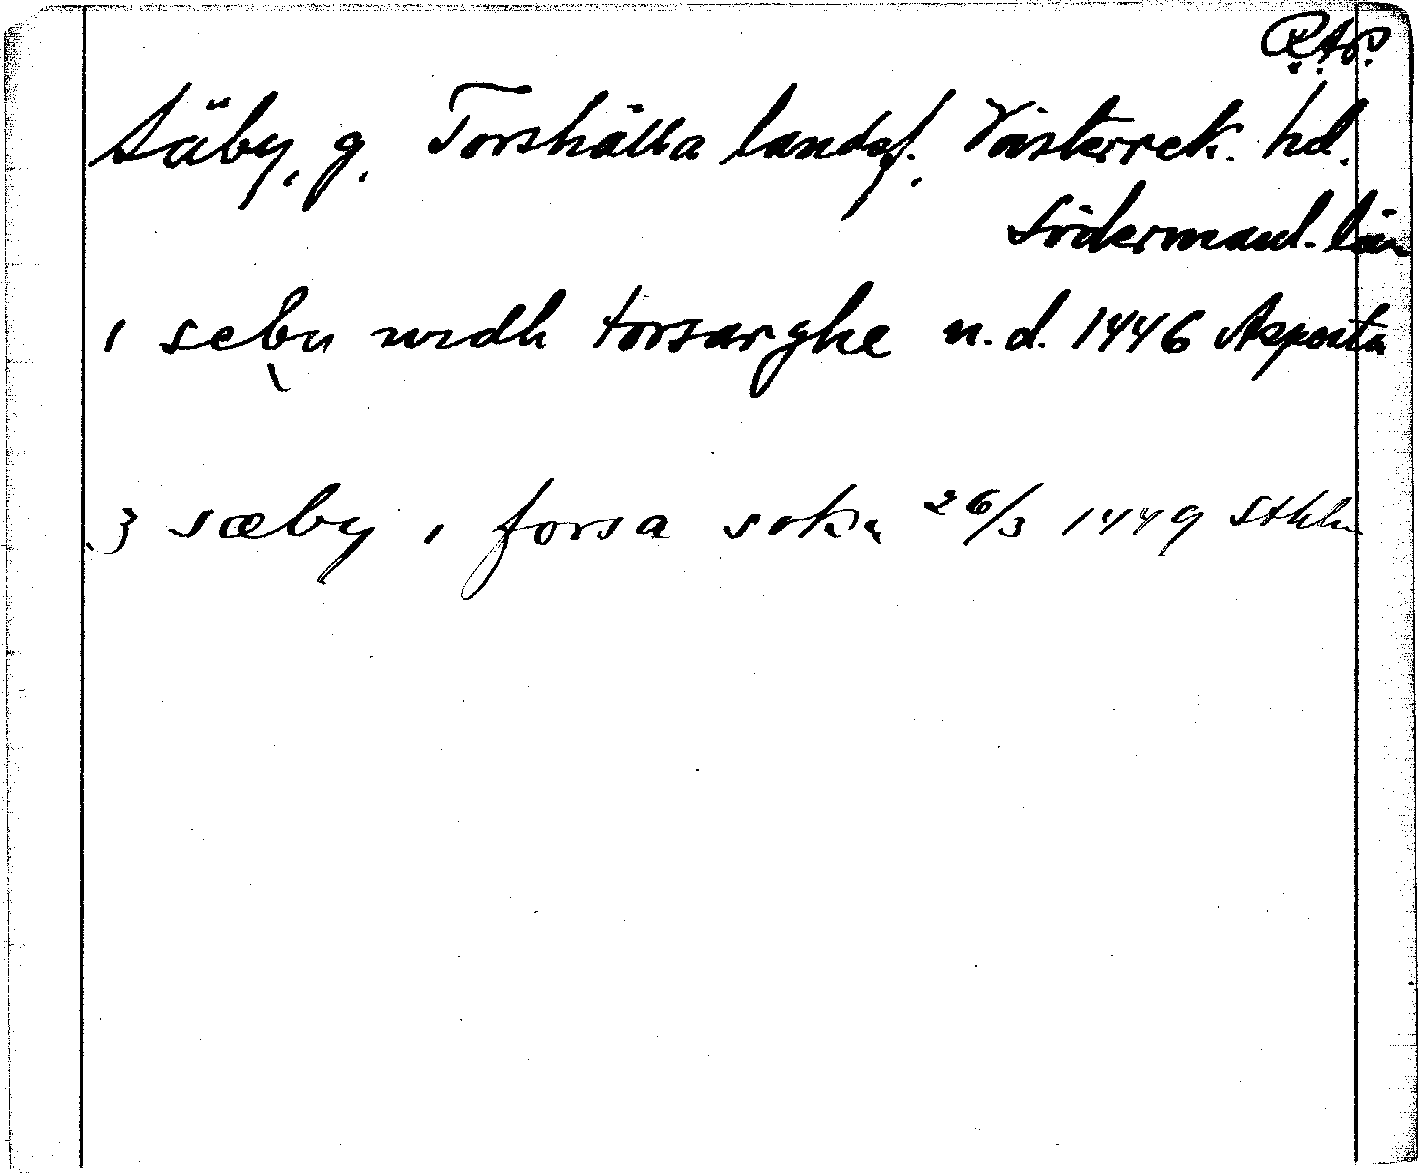 R.A.P.
Säby, g. Torshälla landsf. Västerrek. hd.
Södermanl. län
i seby widh torsarghe u.d. 1446 Asporta
3 sæby i forsa sokn 26/3 1449 Sthlm